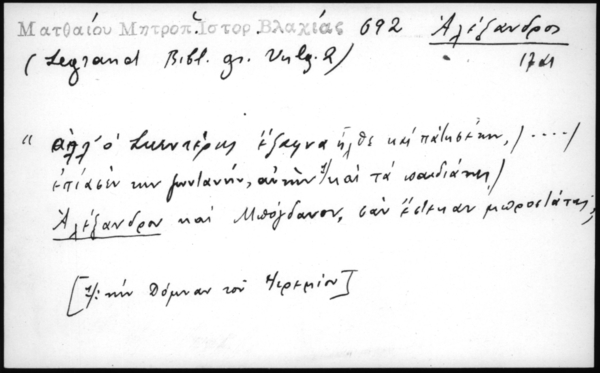 Ματθαίου Μητροπ. Ἱστορ. Βλαχίας 692 Ἀλέξανδρος
(Legrand Bibl. gr. Vulg. 2) 1721
" ἀλλ' ὁ Σκεντέρης ἔξαφνα ἦλθε καὶ πάτησέ την, / ..... /
ἐπίασέν την ζωντανήν, αὐτὴν 1/ καὶ τὰ παιδιά της /
Ἀλέξανδρον καὶ Μπόγδανον, σὰν ἔστεκαν μπροστά της,
[1/: τὴν Δόμναν τοῦ Ἱερεμίου]